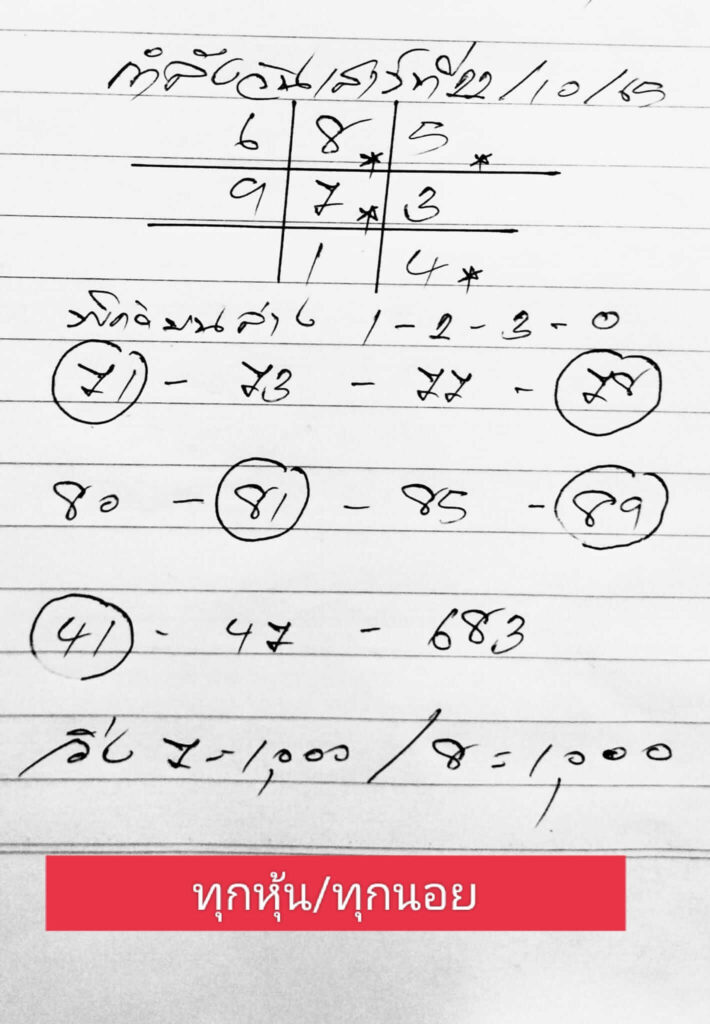 กำลังวันเสาร์ที่22/10/65
6 8* 5*
9 7* 3
1 4*
ล่าง 1-2-3-0
71 - 73 - 77 - 78
80 - 81 - 85 - 89
41 - 47 - 683
วิ่ง 7=1,000 / 8=1,000
ทุกหุ้น/ทุกนอย